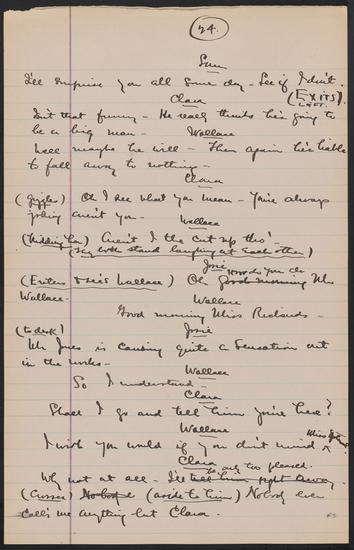 24.
Sam
I'll surprise you all some day - See if I don't.
(Exits Left.)
Clara
Isn't that funny - He really thinks he's going to
be a big man -
Wallace
Well maybe he will - Then again he's liable
to fall away to nothing -
Clara
(giggles) Oh I see what you mean - You're always
joking aren't you -
Wallace
(Kidding her) Aren't I the cut up tho' -
(They both stand laughing at each other)
Josie
(Enters & sees Wallace) Oh Good morning How do you do Mr
Wallace -
Wallace
Good morning Miss Richards -
Josie
(to desk)
Mr Jones is causing quite a sensation out
in the works -
Wallace
So I understood -
Clara
Shall I go and tell him you're here?
Wallace
I wish you would if you don't mind Miss
Clara
Why not at all - I'll be only too pleased.
tell him right away.
(Crosses) Nobod (aside to him) Nobody ever
calls me anything but Clara.